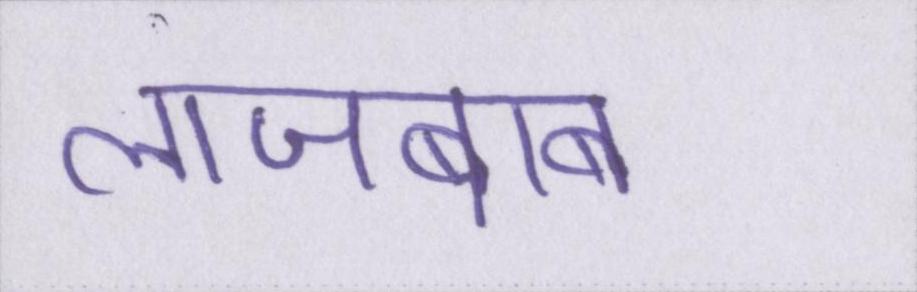 लाजबाब